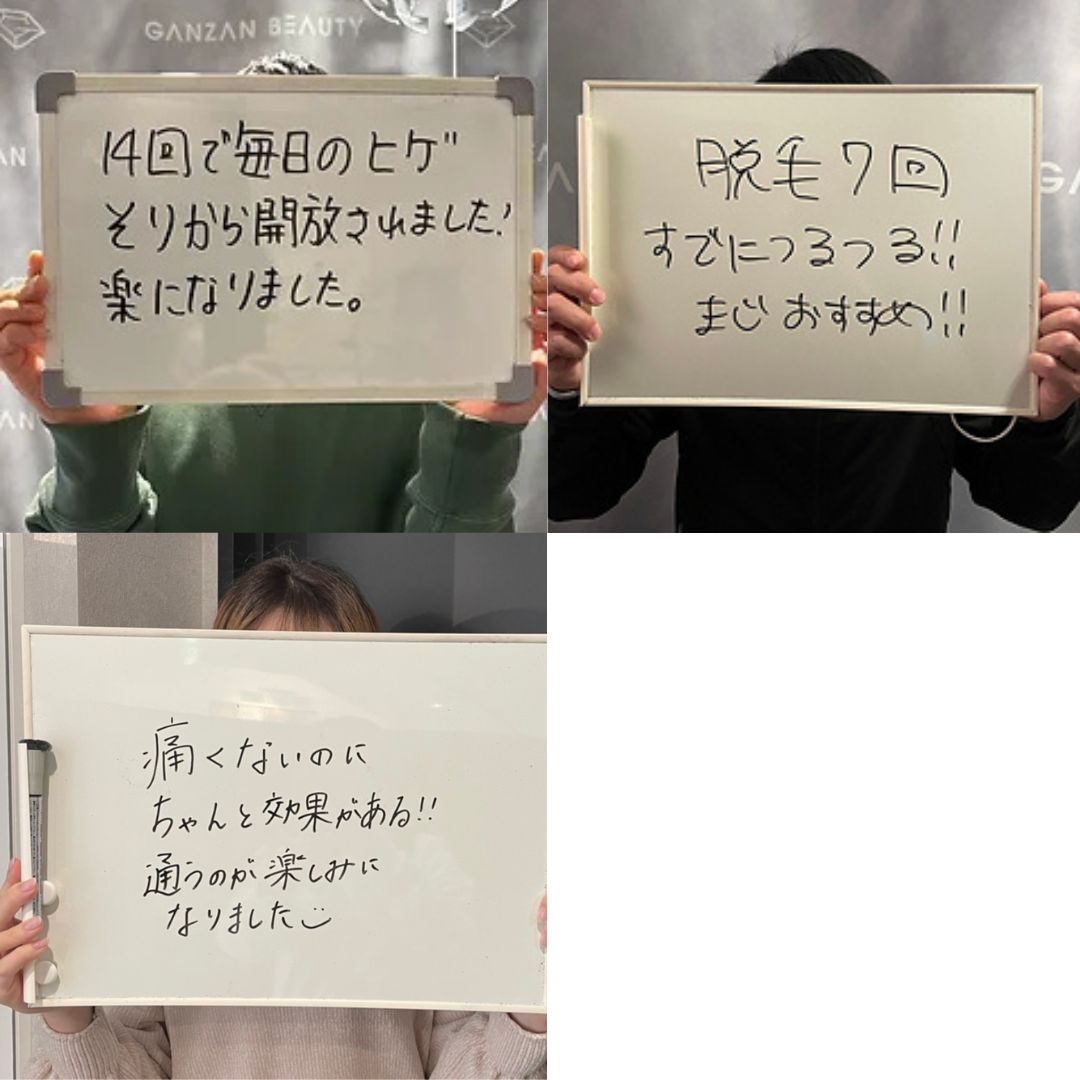 GANZAN BEAUTY
14回で毎日のヒゲ
そりから開放されました!
楽になりました。
脱毛7回
すでにつるつる!!
まじおすすめ!!
痛くないのに
ちゃんと効果がある!!
通うのが楽しみに
なりました